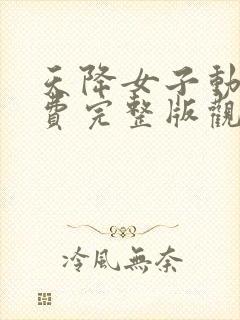 天降女子動
費完整版觀
冷風無奈